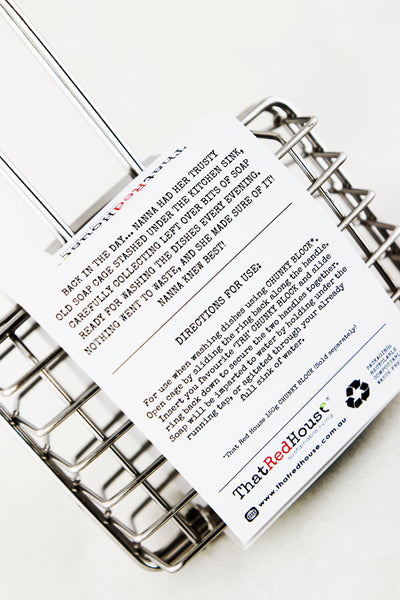 ThatRedHouse
BACK IN THE DAY... NANNA HAD HER TRUSTY
OLD SOAP CAGE STASHED UNDER THE KITCHEN SINK,
CAREFULLY COLLECTING LEFT OVER BITS OF SOAP
READY FOR WASHING THE DISHES EVERY EVENING.
NOTHING WENT TO WASTE, AND SHE MADE SURE OF IT!
NANNA KNEW BEST!
DIRECTIONS FOR USE:
For use when washing dishes using CHUNKY BLOCK*.
Open cage by sliding the ring back along the handle.
Insert you favourite "TRH" CHUNKY BLOCK and slide
ring back down to secure the two handles together.
Soap will be imparted to water by holding under the
running tap, or agitated through your already
full sink of water.
*That Red House 100g CHUNKY BLOCK (Sold separately)
ThatRedHouse
sustainable living
www.thatredhouse.com.au
PACKAGING:
RECYCLABLE